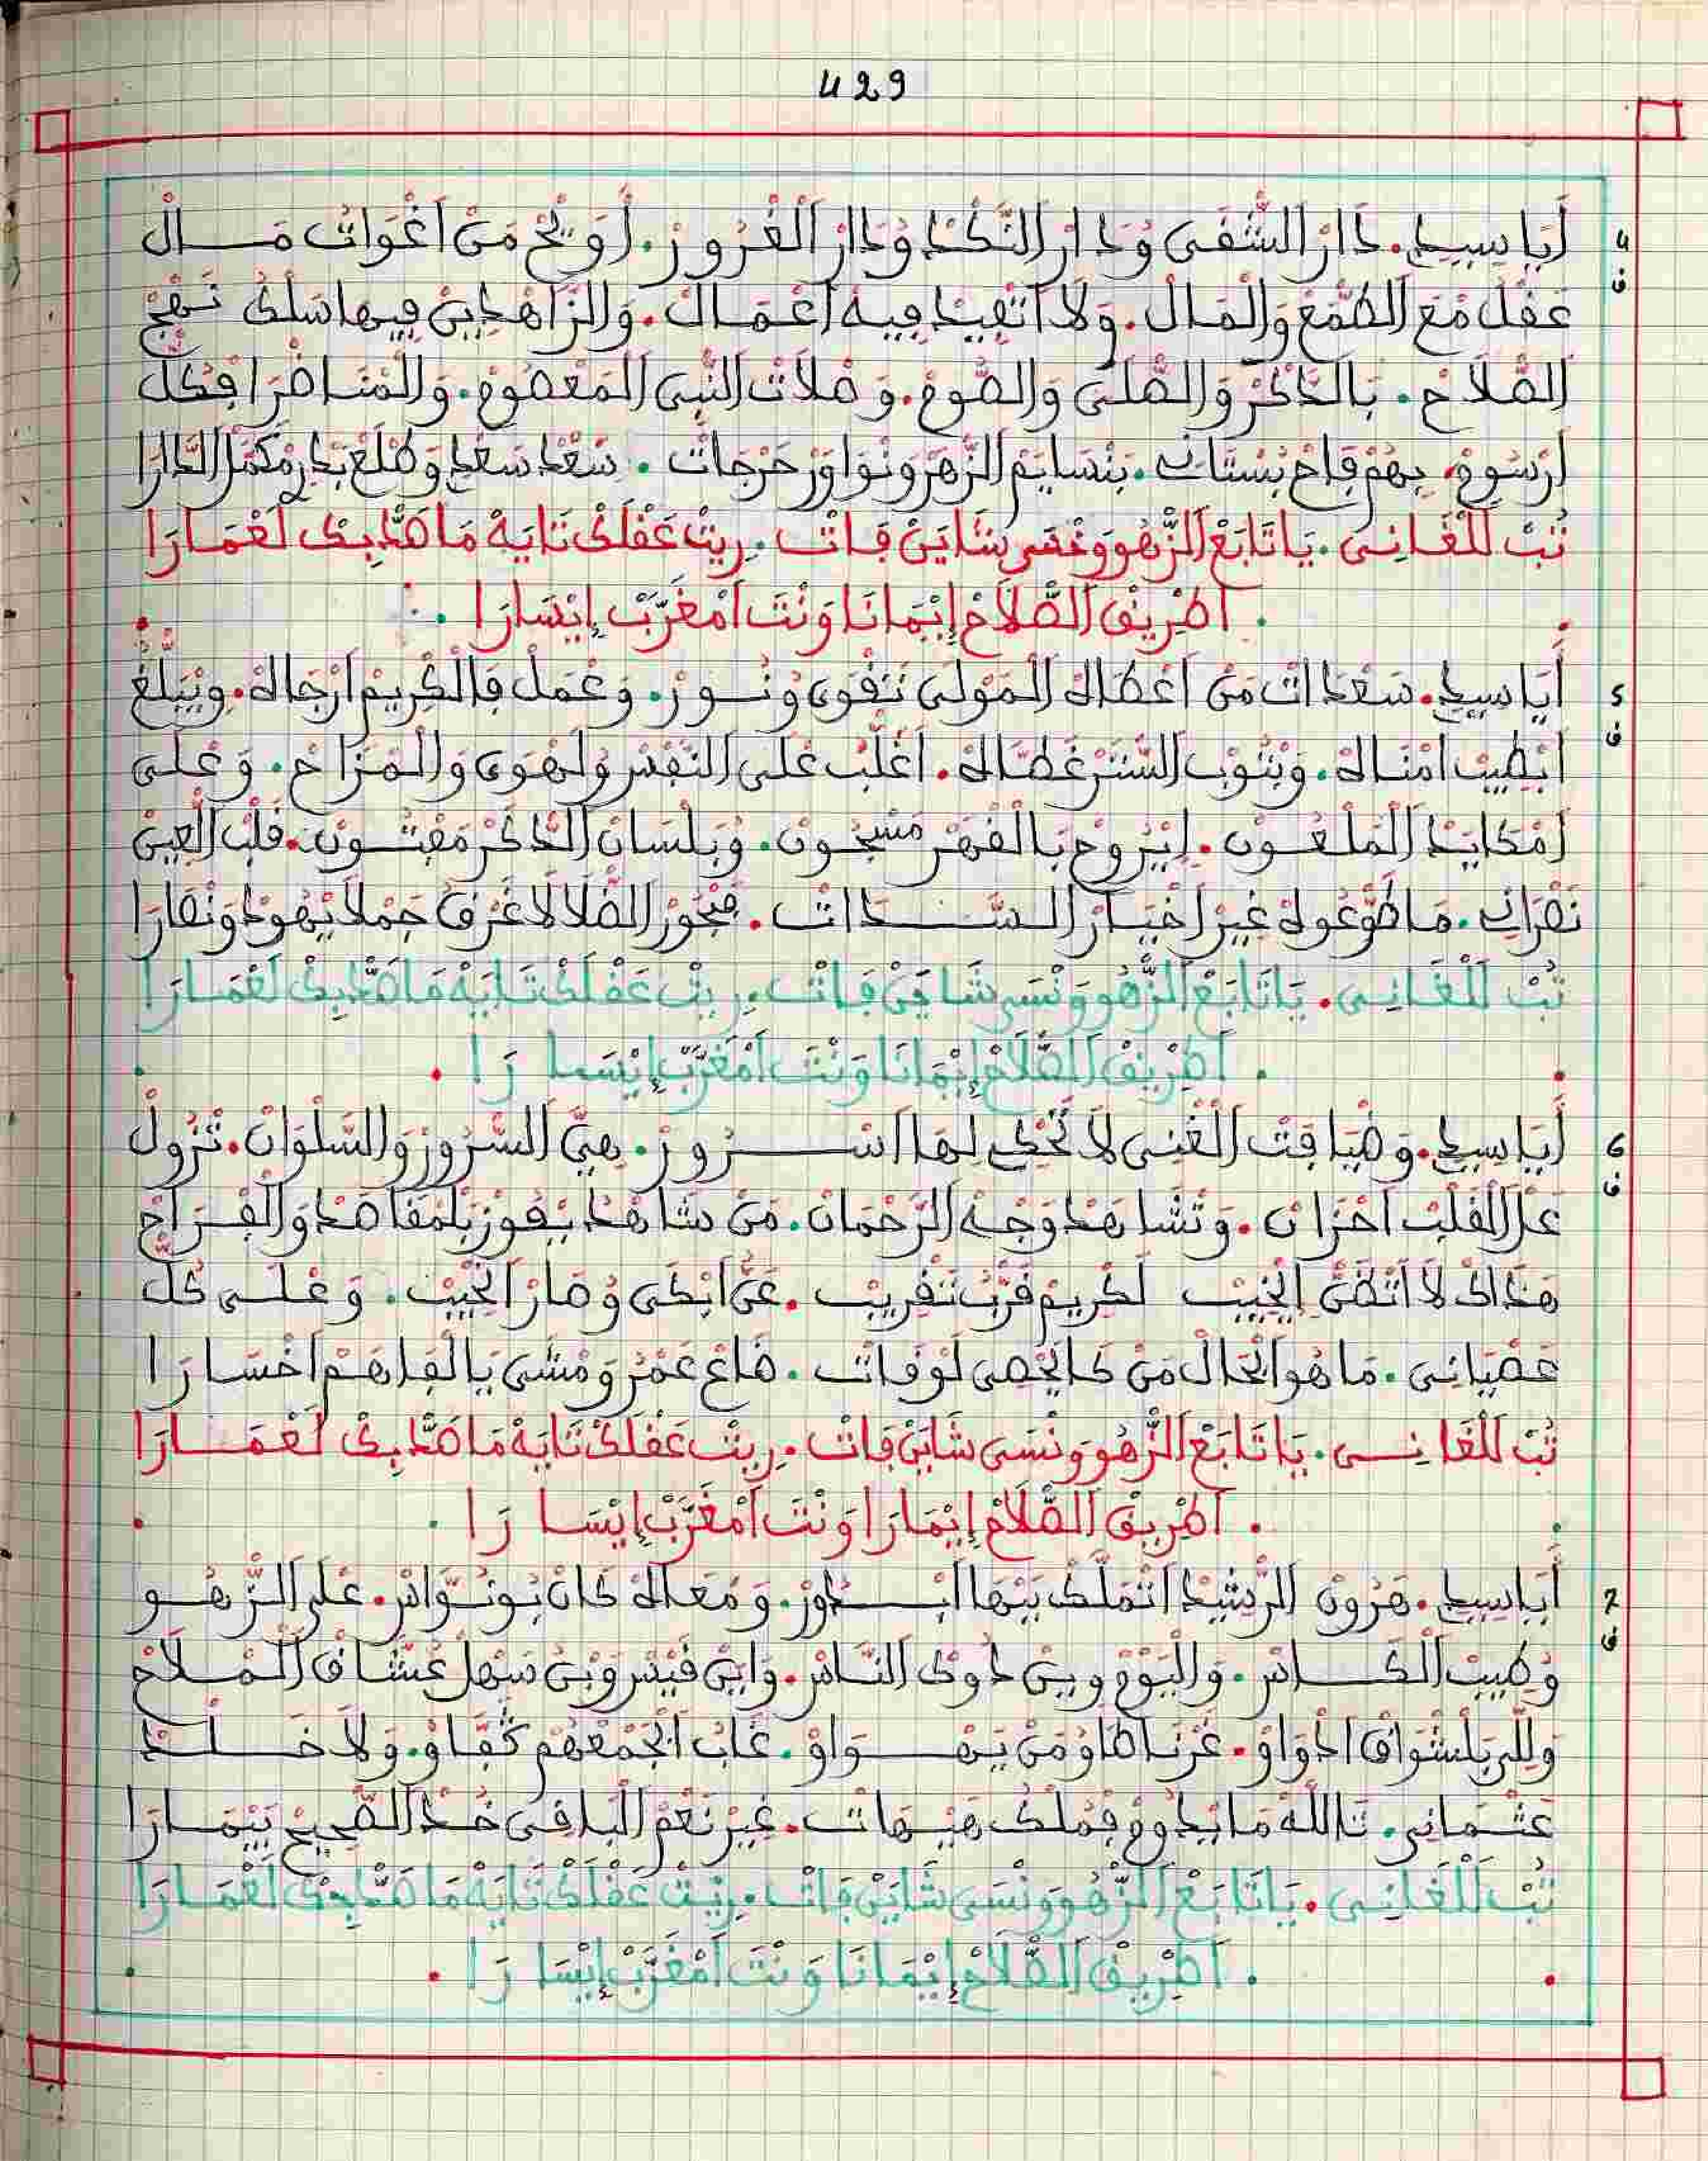 429
4 ف أَيَا سيدِي. دَارْ الشّْقَى وُدَارْ النَّكْدْ وُدَارْ الْغْرُورْ. أَوِيحْ مَنْ اَغْوَاتْ مَــالْ
عَقْلُ مْعَ الطّْمَعْ وَالْمَالْ. وَلَا اَتْفِيدْ فِيهْ اَعْمَالْ. وَالزَّاهْدِينْ فِيهَا سَلْكُ نَهْجْ
الصْلَاحْ. بَالذَّكْرْ وَالصّْلَى وَالصُّومْ. وَصْلَاتْ النّْبِي الْمَعْصُومْ. وَالْمْنَاضْرَا فْكُلّْ
اَرْسُومْ. بِهُمْ فَاحْ بُسْتَانِ. بَنْسَايَمْ الزّْهَرْ وَنْوَاوَرْ حَرْجَاتْ. سَعْدْ سَعْدِي وَطْلَعْ بَدْرِ مْكَمَّلْ الدَّارَا
تُبْ لَلْغَانِي. يَا تَابَعْ الزّْهُو وَنْسَى شَايَنْ فَاتْ. رِيتْ عَقْلَكْ تَايَهْ مَا هَدَّى بِكْ لَعْمَارَا
. اَطْرِيقْ الصّْلَاحْ إِيْمَانَا وَنْتَ اَمْغَرَّبْ إِيْسَارَا .
5 ف أَيَا سيدِي. سَعْدَاتْ مَنْ اَعْطَاهْ الْمَوْلَى تَقْوَى وُنُــورْ. وَعْمَلْ فَالْكْرِيمْ اَرْجَاهْ. وِيْبَلّْغْ
اَبْطِيبْ اَمْنَاهْ. وَبْثُوبْ السّْتَرْ غَطَّاهْ. اَغْلَبْ عْلَى النّْفْسْ وَلْهْوَى وَالْمْزَاحْ. وَعْلَى
اَمْكَايَدْ الْمَلْعُــونْ. اِيْرُوحْ بَالْقْهَرْ مَسْجُونْ. وُبَلْسَانْ الذّْكَرْ مَفْتُــونْ. قَلْبْ الْعِينْ
نَصْرَانِ. مَا طَوّْعُوهْ غِيرْ اَخْيَارْ السَّــدَاتْ. فَبْحُورْ الضّْلَالَا غَرْقُ جَمْلَا يْهُودْ وَنْصَارَا
تُبْ لَلْغَانِي. يَا تَابَعْ الزّْهُو وَنْسَى شَايَنْ فَاتْ. رِيتْ عَقْلَكْ تَايَهْ مَا هَدَّى بِكْ لَعْمَارَا
. اَطْرِيقْ الصّْلَاحْ إِيْمَانَا وَنْتَ اَمْغَرَّبْ إِيْسَارَا .
6 ف أَيَا سيدِي. وَضْيَافْتْ الْغْنِي لَا تَحْكِي لهَا اَسْــرُورْ. هِيَّ السّْرُورْ وَالسَّلْوَانْ. تْزُولْ
عَلَ الْقَلْبْ اَحْزَانْ. وَتْشَاهَدْ وَجْهْ الرَّحْمَانْ. مَنْ شَاهْدُ يْفُوزْ بَلْمْقَاصَدْ وَالْفْرَاجْ
هَذَاكْ لَا اَتْضَنُّ اِيْخِيبْ لَكْرِيمْ قَرّْبُ تَقْرِيبْ. عَنُّ اَبْكَى وُصَارْ اَنْحِيبْ. وَعْلَى كُلّْ
عَصْيَانِي. مَا هُو اَبْحَالْ مَنْ كَايْحْصِي لَوْقَاتْ. ضَاعْ عَمْرُ وَمْشَى يَا الْفَاهَمْ اَخْسَارَا
تُبْ لَلْغَانِــي. يَا تَابَعْ الزّْهُو وَنْسَى شَايَنْ فَاتْ. رِيتْ عَقْلَكْ تَايَهْ مَا هَدَّى بِكْ لَعْمَــارَا
. اَطْرِيقْ الصّْلَاحْ إِيْمَارَا وَنْتَ اَمْغَرَّبْ إِيْسَارَا .
7 ف أَيَا سيدِي. هَرُونْ الرّْشِيدْ اَتْمَلَّكْ بَيْهَا اَبْــدُورْ. وَمْعَاهْ كَانْ بُونُــوَّاسْ. عْلَى الزّْهُــو
وُطِيبْ الْكَــاسْ. وَالْيُومْ وِينْ دُوكْ النَّاسْ. وَايْنْ قَيْسْ وَبْنْ سَهْلْ عُشَّاقْ الْمْــلَاحْ
وَلِّي بَلْشْوَاقْ اَدْوَاوْ. عَرْبْ اَطْاوْ مَنْ يَــهْــوَاوْ. غَابْ اَبْجَمْعْهُمْ تَقْفَاوْ. وَلَا خَــلْــدْ
عَتْمَانِي. تَاللَّهْ مَا يْدُومْ فْمُلْكُ هَيْهَاتْ. غِيرْ نَعْمْ الْبَاقِي خُدْ الصّْحِيحْ بَيْمَــارَا
تُبْ لَلْغَانِي. يَا تَابَعْ الزّْهُو وَنْسَى شَايَنْ فَاتْ. رِيتْ عَقْلَكْ تَايَهْ مَا هَدَّى بِكْ لَعْمَــارَا
. اَطْرِيقْ الصّْلَاحْ إِيْمَانَا وَنْتَ اَمْغَرَّبْ إِيْسَارَا .